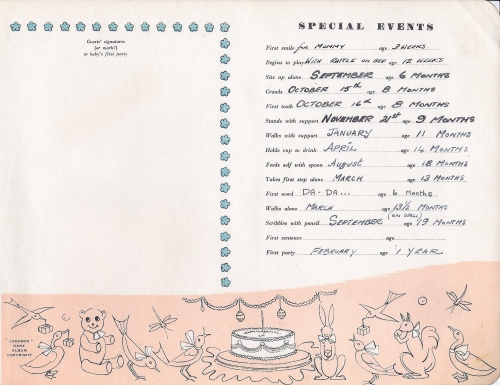 Guests' signatures
(or mark!)
at baby's first party
SPECIAL EVENTS
First smile for MUMMY age 3 WEEKS
Begins to play WITH RATTLE ON BED age 12 WEEKS
Sits up alone SEPTEMBER age 6 MONTHS
Crawls OCTOBER 15th age 8 MONTHS
First tooth OCTOBER 16th age 8 MONTHS
Stands with support NOVEMBER 21st age 9 MONTHS
Walks with support JANUARY age 11 MONTHS
Holds cup to drink APRIL age 14 MONTHS
Feeds self with spoon August age 18 MONTHS
Takes first step alone MARCH age 13 MONTHS
First word DA-DA... age 6 Months
Walks alone MARCH age 13½ MONTHS
Scribbles with pencil SEPTEMBER (ON WALL) age 19 MONTHS
First sentence age
First party FEBRUARY age 1 YEAR
"JAKEBOY"
BABY
ALBUM
COPYRIGHT